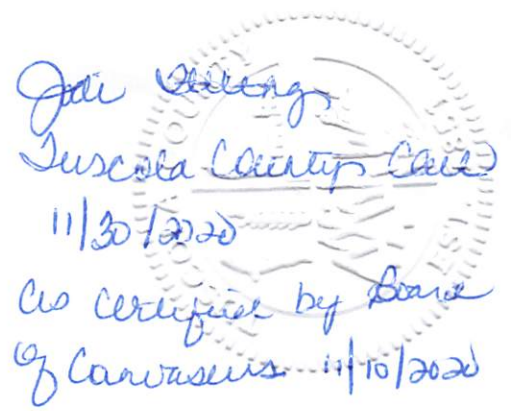 Jodi Fetting
Tuscola County Clerk
11/30/2020
as certified by Board
of Canvassers 11/10/2020